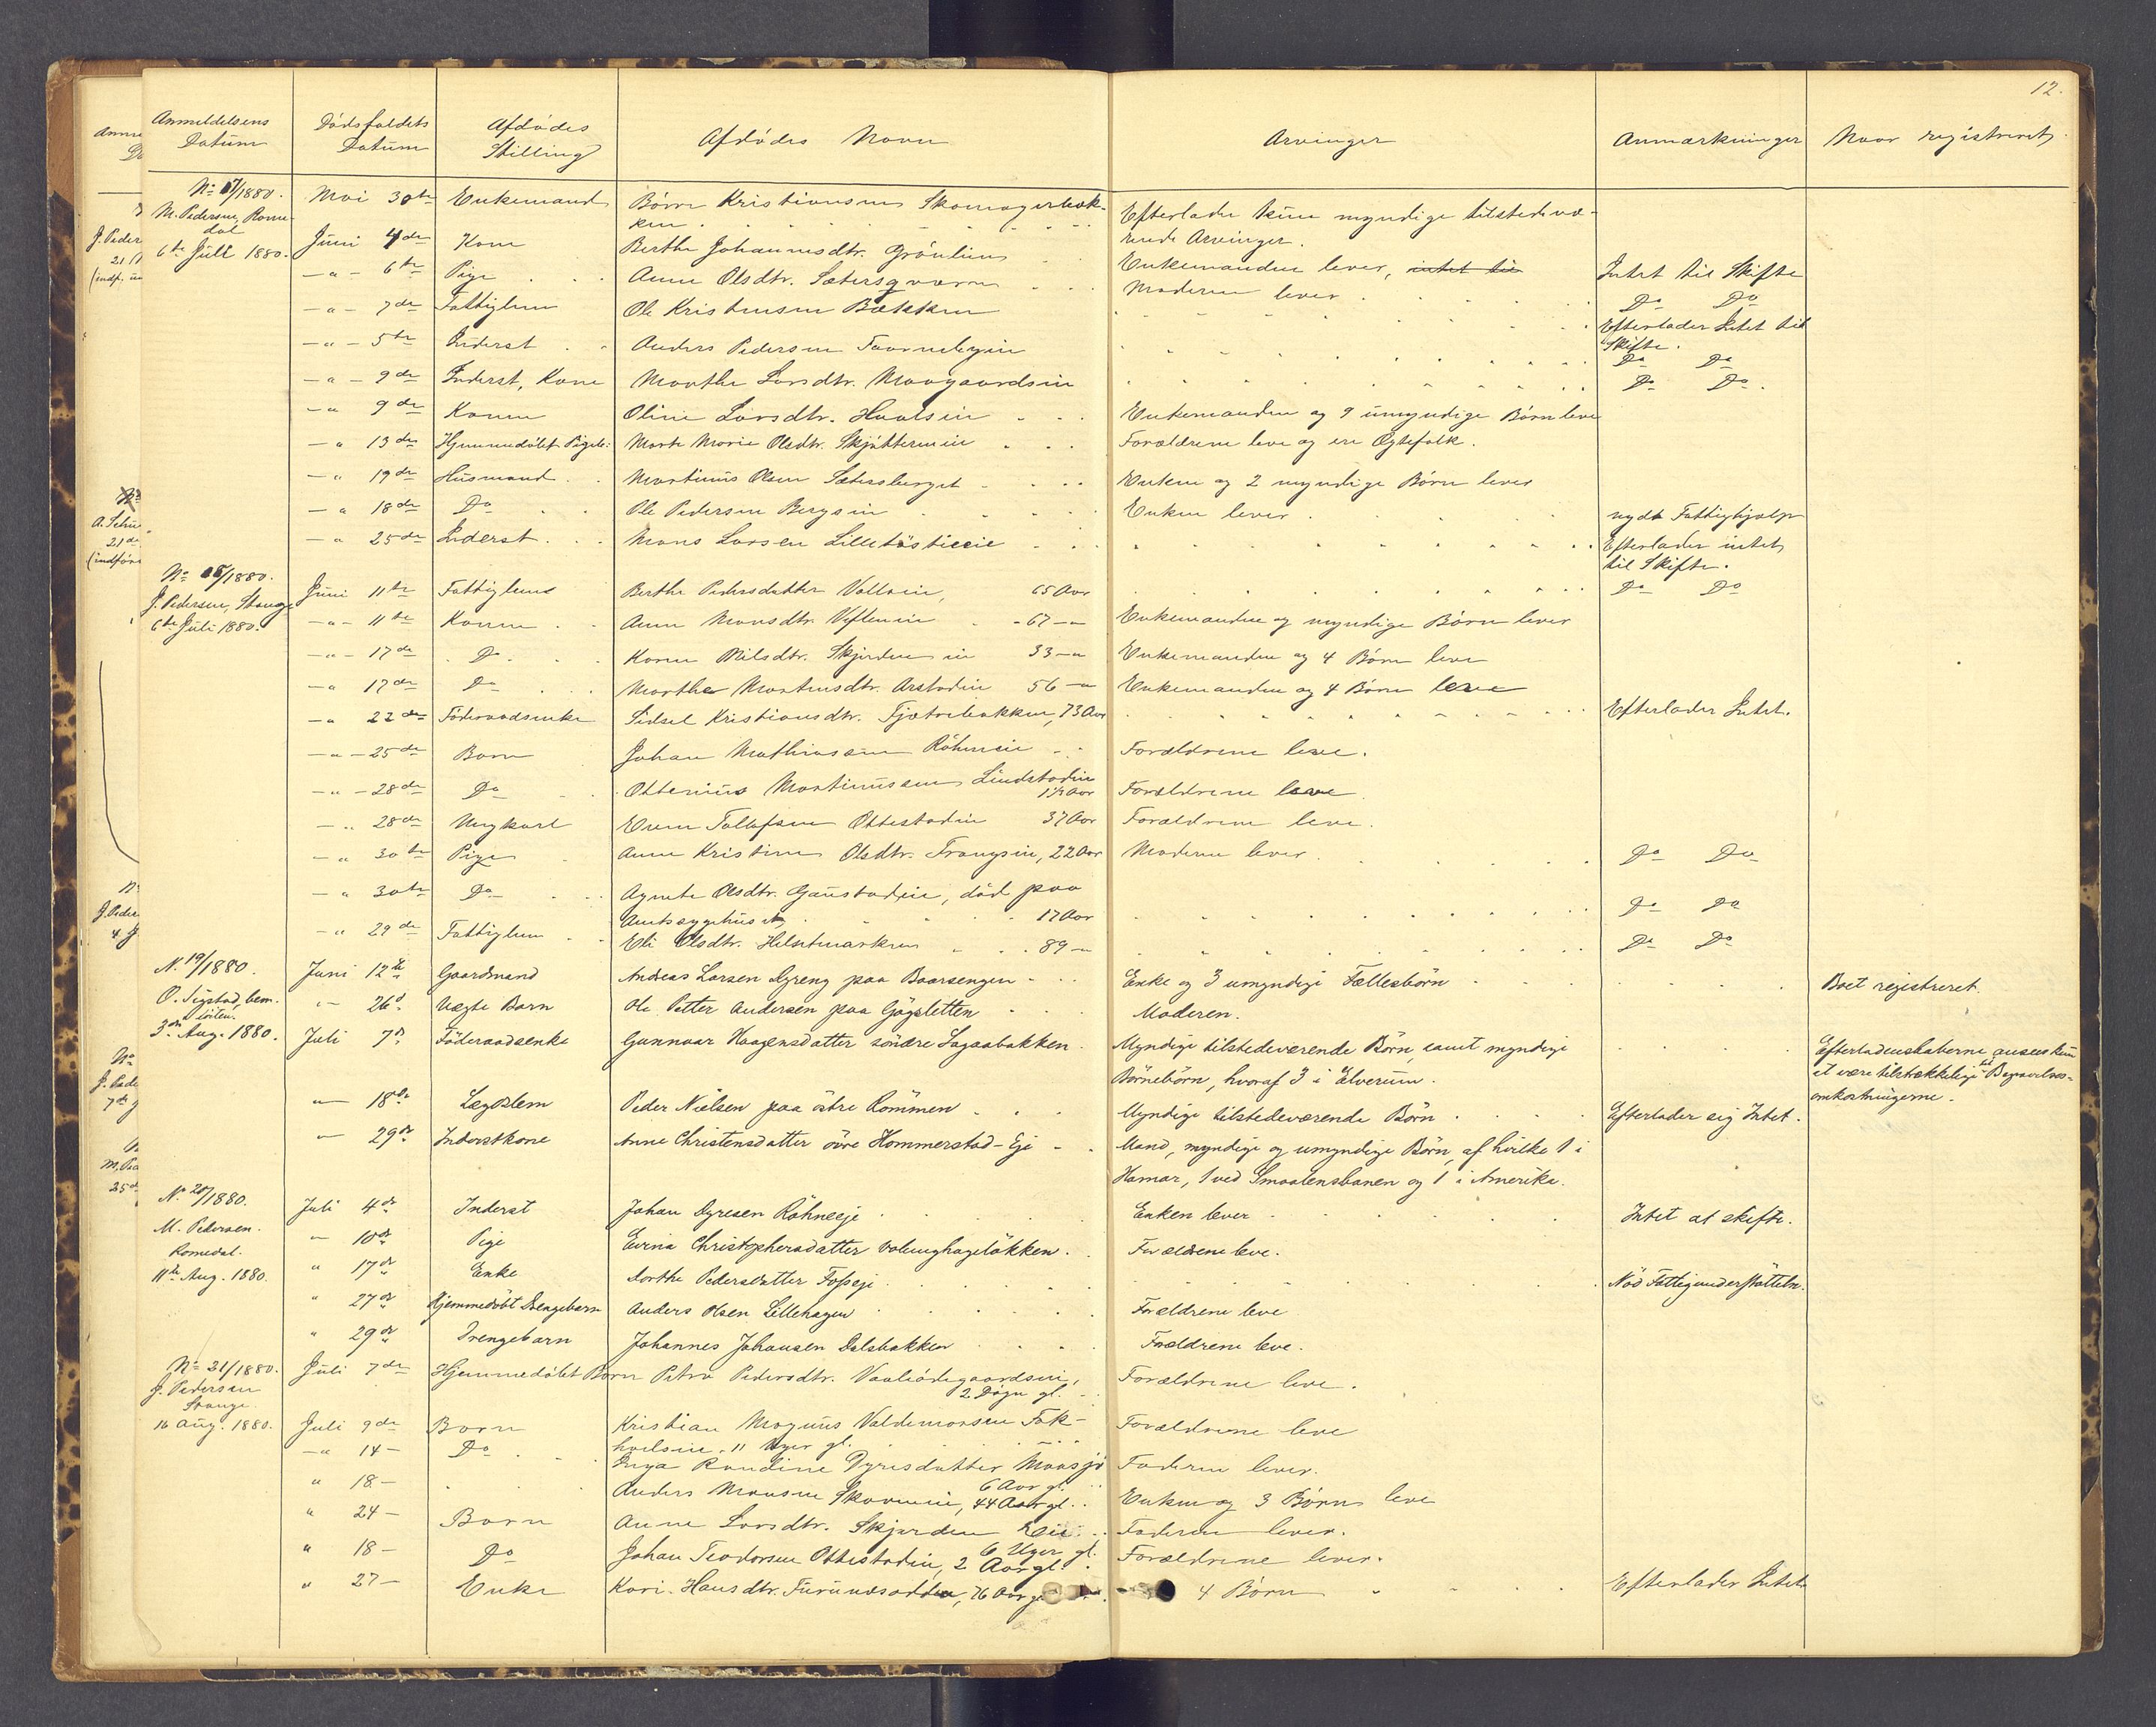 12.
Anmeldelsens Datum Dødsfaldets Datum Afdødes Stilling Afdødes Navn Arvinger Anmærkninger Naar registreret
No 17/1880. Mai 30te Enkemand Børre Kristiansen Skomagerbak- Efterlader kun myndige tilstedevæ-
M. Pedersen, Rome- ken. rende Arvinger.
dal Juni 4de Kone Berthe Johannesdtr. Grønlien Enkemanden lever, intet til Intet til Skifte
6te Juli 1880. -"- 6te Pige Anne Olsdtr. Sætersqværn Moderen lever Do Do
-"- 7de Fattiglem Ole Kristensen Bækken Efterlader Intet til Skifte.
-"- 5te Inderst Anders Pedersen Do Do
-"- 9de Inderst, Kone Marthe Larsdtr. Do Do.
-" 9de Konen Oline Larsdtr. Enkemanden og 9 umyndige Børn leve
-" 13de Hjemmedøbt Pigeb: Marte Marie Olsdtr. Forældrene leve og ere Ægtefolk.
-" 19de Husmand Martinus Olsen Sætersberget Enken og 2 myndige Børn lever
-" 18de Do Ole Pedersen Bergseie Enken lever nydt Fattighjælp
-" 25de Inderst Mons Larsen Efterlader intet til Skifte.
No 18/1880. Juni 11te Fattiglem Berthe Pedersdatter 65 Aar Do Do
J. Pedersen, Stange -"- 11te Konen Anne Monsdtr. 67-" Enkemanden og myndige Børn lever
6te Juli 1880. -"- 17de Do. Karen Nilsdtr. 33-" Enkemanden og 4 Børn leve
-" 17de Do Marthe Martinsdtr. 56-" Enkemanden og 4 Børn leve
-" 22de Føderaadsenke Sidsel Kristiansdtr. 73 Aar Efterlader Intet.
-"- 25de Barn Johan Mathiassen Forældrene leve.
-"- 28de Do Otterius Martinussen 1½ Aar Forældrene leve.
-" 28de Ungkarl Even Tollefsen Ottestadeie 37 Aar Forældrene leve.
-" 30te Pige Anne Kristine Olsdtr. 22 Aar Moderen lever Do Do
-" 30te Do Agnete Olsdtr. Gaustadeie, død paa
Amtssygehuset, 17 Aar Do Do
-" 29de Fattiglem Eli Olsdtr. 89-" Do Do
No. 19/1880. Juni 12te Gaardmand Andreas Larsen Gyreng paa Baarsengen Enke og 3 umyndige Fællesbörn Boet registreret.
O. Sigstad, bem. "- 26d. Uægte Barn Ole Petter Andersen paa Gögsletten Moderen.
Löiten.
3die Aug. 1880. Juli 7de Föderaadsenke Gunnaar Haagensdatter söndre Sagaabakken Myndige tilstedeværende Börn, samt myndige Efterladenskaberne ansees kun
Börnebörn, hvoraf 3 i Elverum. at være tilstrækkelige til Begravelses-
omkostningerne.
"- 18de Lægdslem Peder Nielsen paa östre Rommen Myndige tilstedeværende Börn Efterlader sig Intet.
"- 29de Inderstkone Anne Christensdatter övre Hommerstad-Eje Mand, myndige og umyndige Börn, af hvilke 1 i
Hamar, 1 ved Smaalensbanen og 1 i Amerika.
No. 20/1880. Juli 4de Inderst Johan Dyresen Röhneeje Enken lever Intet at skifte.
M. Pedersen. "- 10de Pige Evina Christophersdatter Forældrene leve.
Romedal. " 17de Enke Marthe Pedersdatter Fosseje Nöd Fattigunderstøttelse.
11te Aug. 1880. " 27de Hjemmedöbt Drengebarn Anders Olsen Lillehagen Forældrene leve
" 29de Drengebarn Johannes Johansen Dalsbakken Forældrene leve.
No 21/1880. Juli 7de Hjemmedøbt Barn Petra Pedersdtr. Forældrene leve.
J. Pedersen 2 Døgn gl.
Stange.
16 Aug. 1880. Juli 9de Barn Kristian Magnus Valdemarsen Fok- Forældrene leve
hoelseie, 11 Uger gl.
-" 14- Do Inga Randine Dyresdatter Faderen lever.
6 Aar gl.
" 18- Anders Monsen 44 Aar gl. Enken og 3 Børn leve
" 24- Barn Anne Larsdtr. Skjerden Eie Faderen lever.
6 Uger gl.
" 18- Do Johan Teodorsen Ottestadeie, 2 Aar gl. Forældrene lever.
" 27- Enke Kari Hansdtr. 76 Aar gl. 4 Børn Efterlader Intet